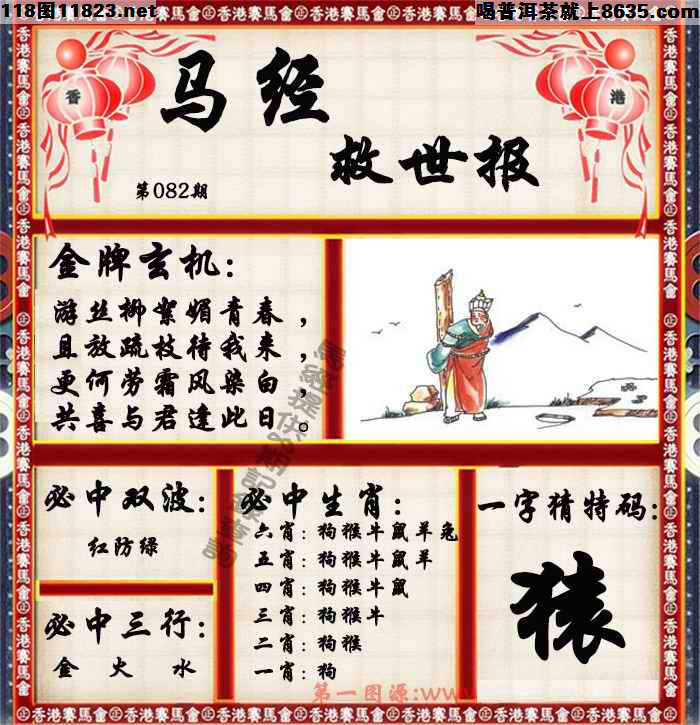 118图11823.net
喝普洱茶就上8635.com
香
港
马经
救世报
第082期
金牌玄机:
游丝柳絮媚青春，
且放疏枝待我来，
更何劳霜风染白，
共喜与君逢此日。
必中双波:
红防绿
必中三行:
金 火 水
必中生肖:
六肖:狗猴牛鼠羊兔
五肖:狗猴牛鼠羊
四肖:狗猴牛鼠
三肖:狗猴牛
二肖:狗猴
一肖:狗
一字猜特码:
猿
第一图源:www
香港賽馬會